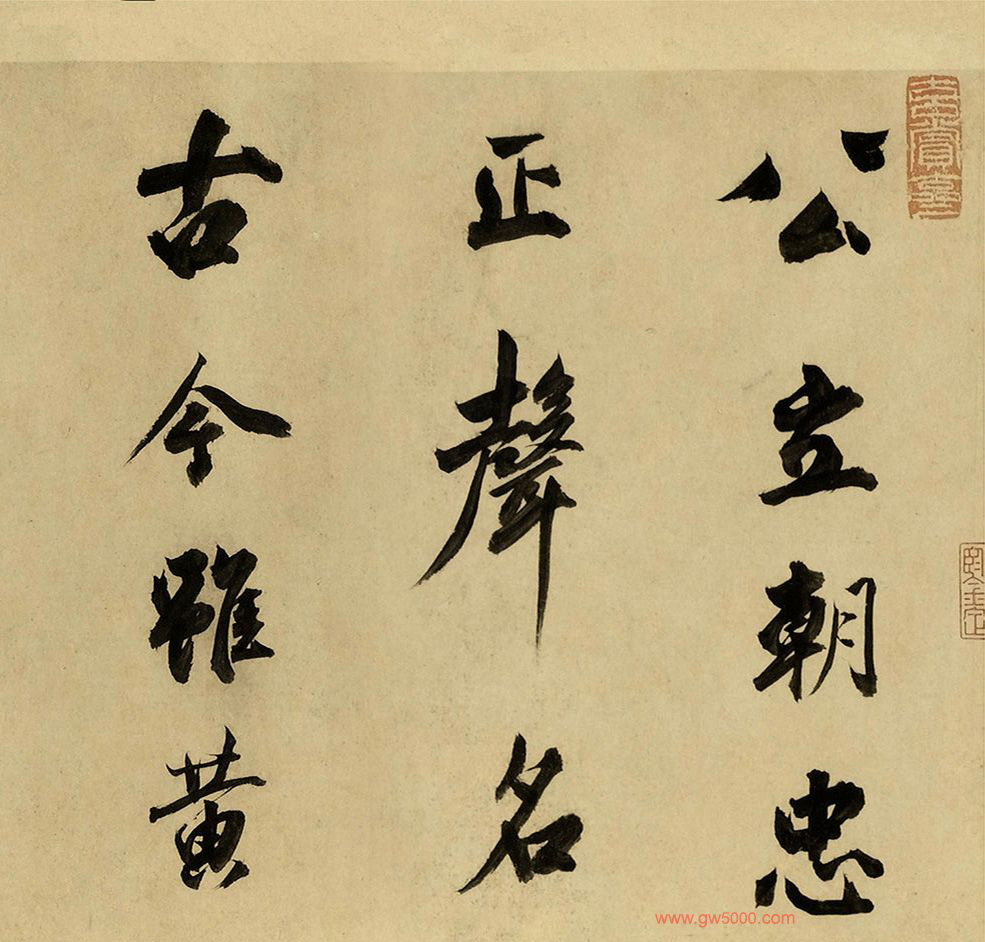 公立朝忠
正聲名
古今雖黃
www.gw5000.com